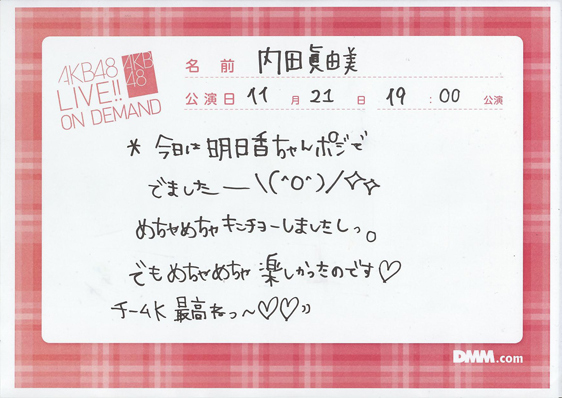 AKB48
LIVE!!
ON DEMAND
AKB
48
名前 内田眞由美
公演日 11月 21日 19:00 公演
* 今日は明日香ちゃんポジで
でましたー \(^o^)/☆☆
めちゃめちゃキンチョーしましたしっ。
でもめちゃめちゃ楽しかったのです♡
チームK 最高ねっ〜♡♡))
DMM.com